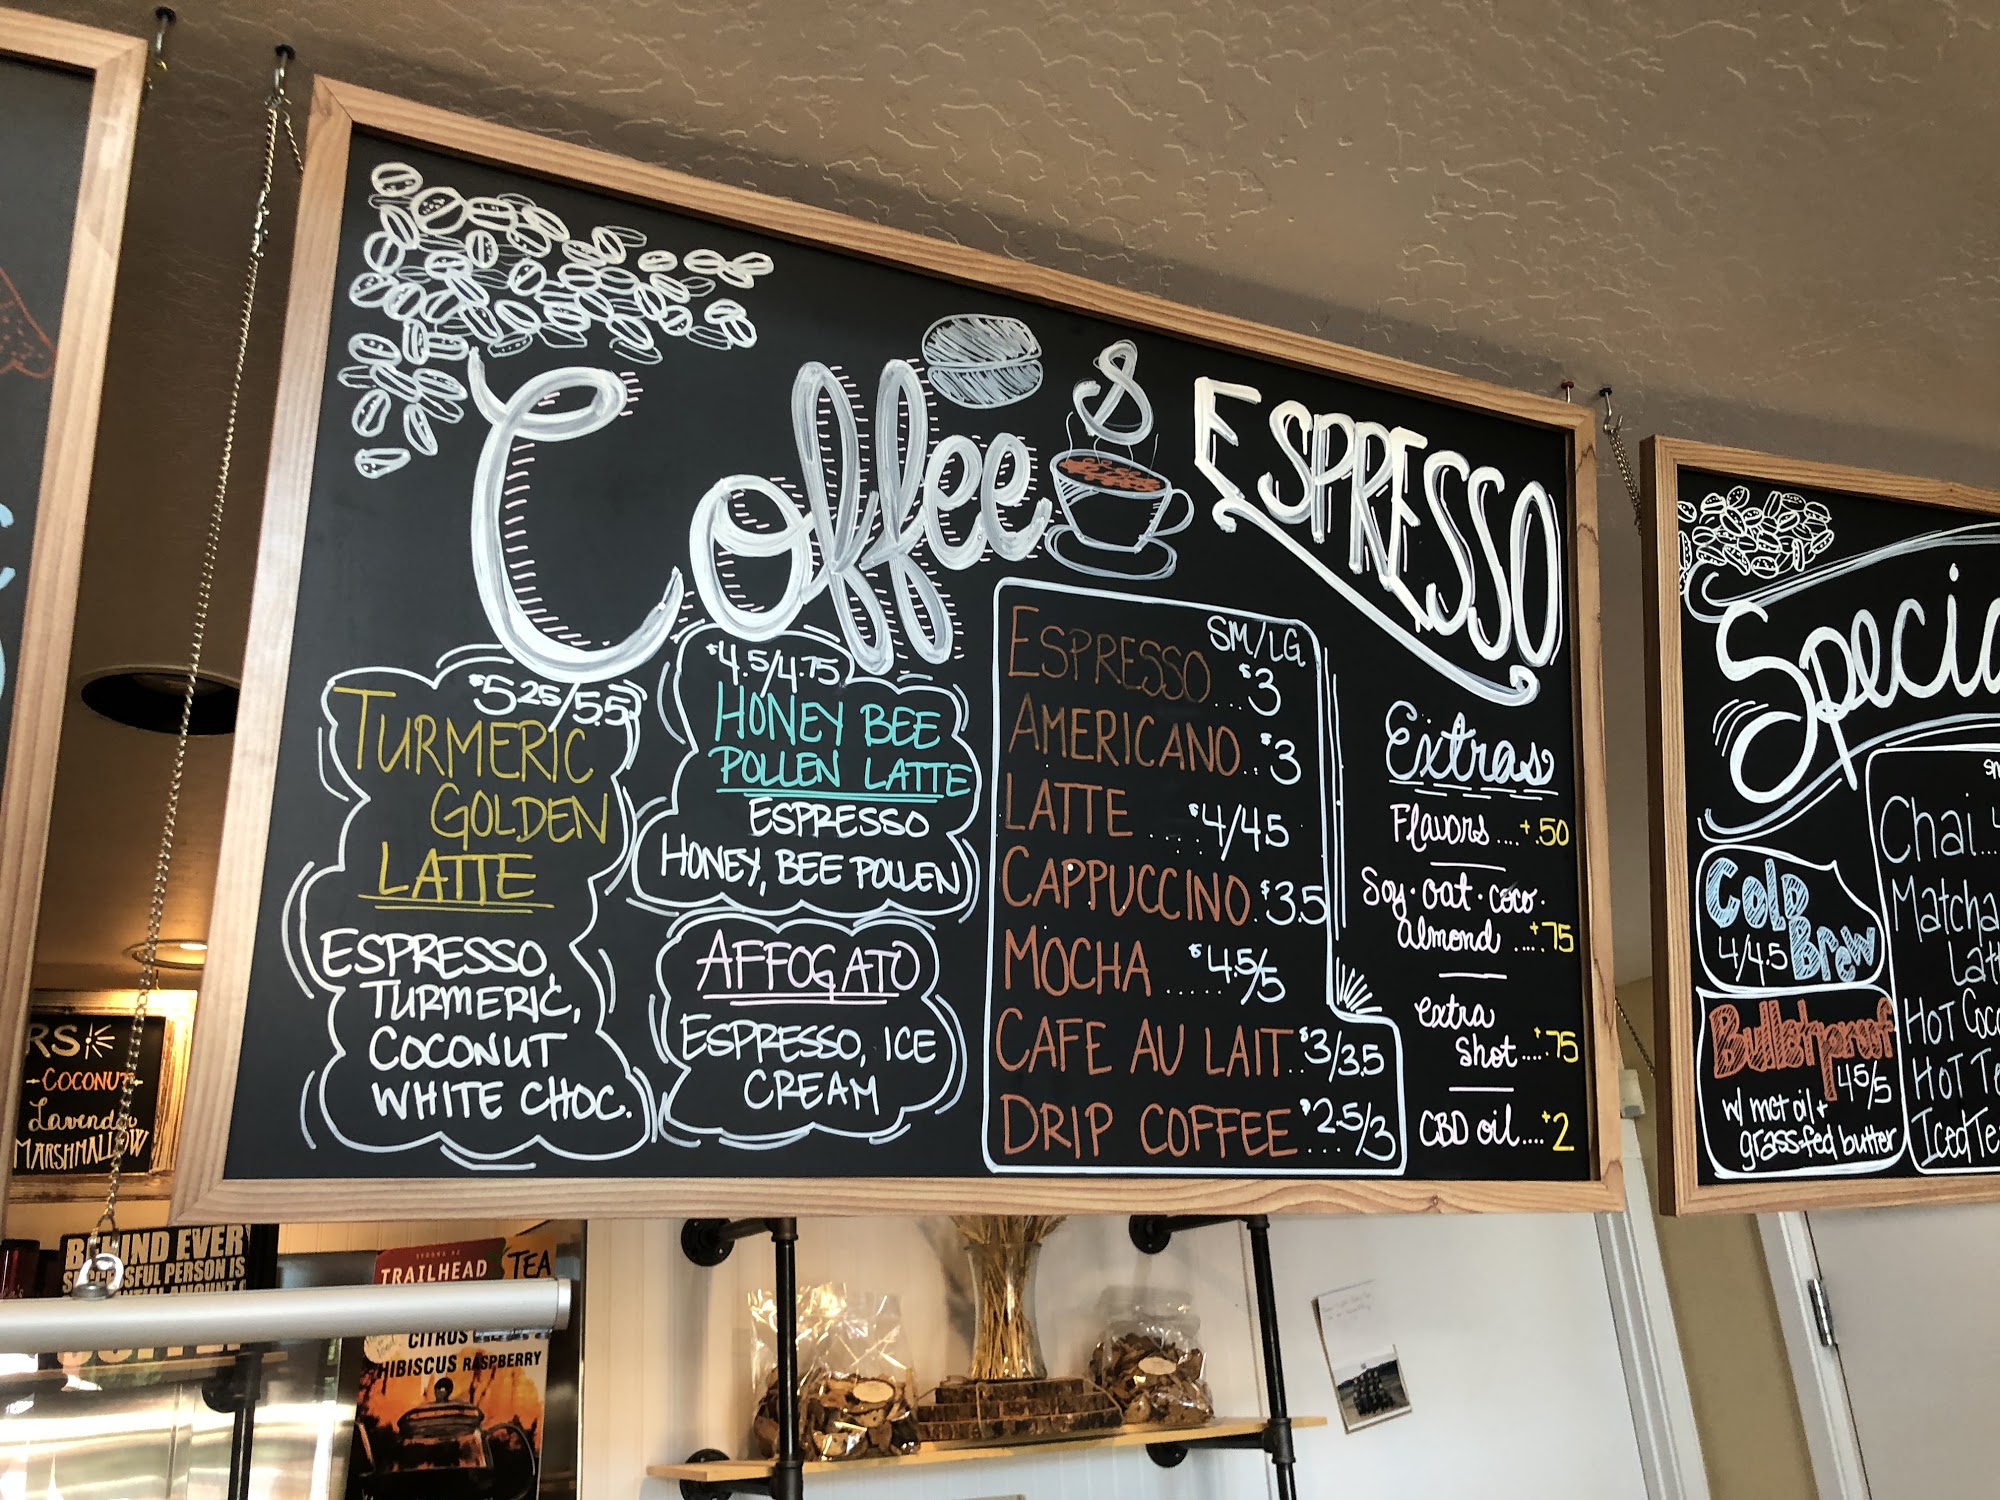 Coffee & ESPRESSO
$5.25/5.5
TURMERIC
GOLDEN
LATTE
ESPRESSO,
TURMERIC,
COCONUT
WHITE CHOC.
$4.5/4.75
HONEY BEE
POLLEN LATTE
ESPRESSO
HONEY, BEE POLLEN
AFFOGATO
ESPRESSO, ICE
CREAM
SM/LG
ESPRESSO...$3
AMERICANO..$3
LATTE ....$4/4.5
CAPPUCCINO.$3.5
MOCHA .....$4.5/5
CAFE AU LAIT.$3/3.5
DRIP COFFEE...$2.5/3
Extras
Flavors....+.50
Soy·oat·coco·
almond ....+.75
extra
shot....+.75
CBD oil....+2
Special
Cold
Brew
4/4.5
Bulletproof
4.5/5
w/ mct oil +
grass-fed butter
Chai...
Matcha
Hot
Hot
Iced
RS
-COCONUT-
Lavender
MARSHMALLOW
BEHIND EVERY
SUCCESSFUL PERSON IS
TRAILHEAD
TEA
CITRUS
HIBISCUS RASPBERRY